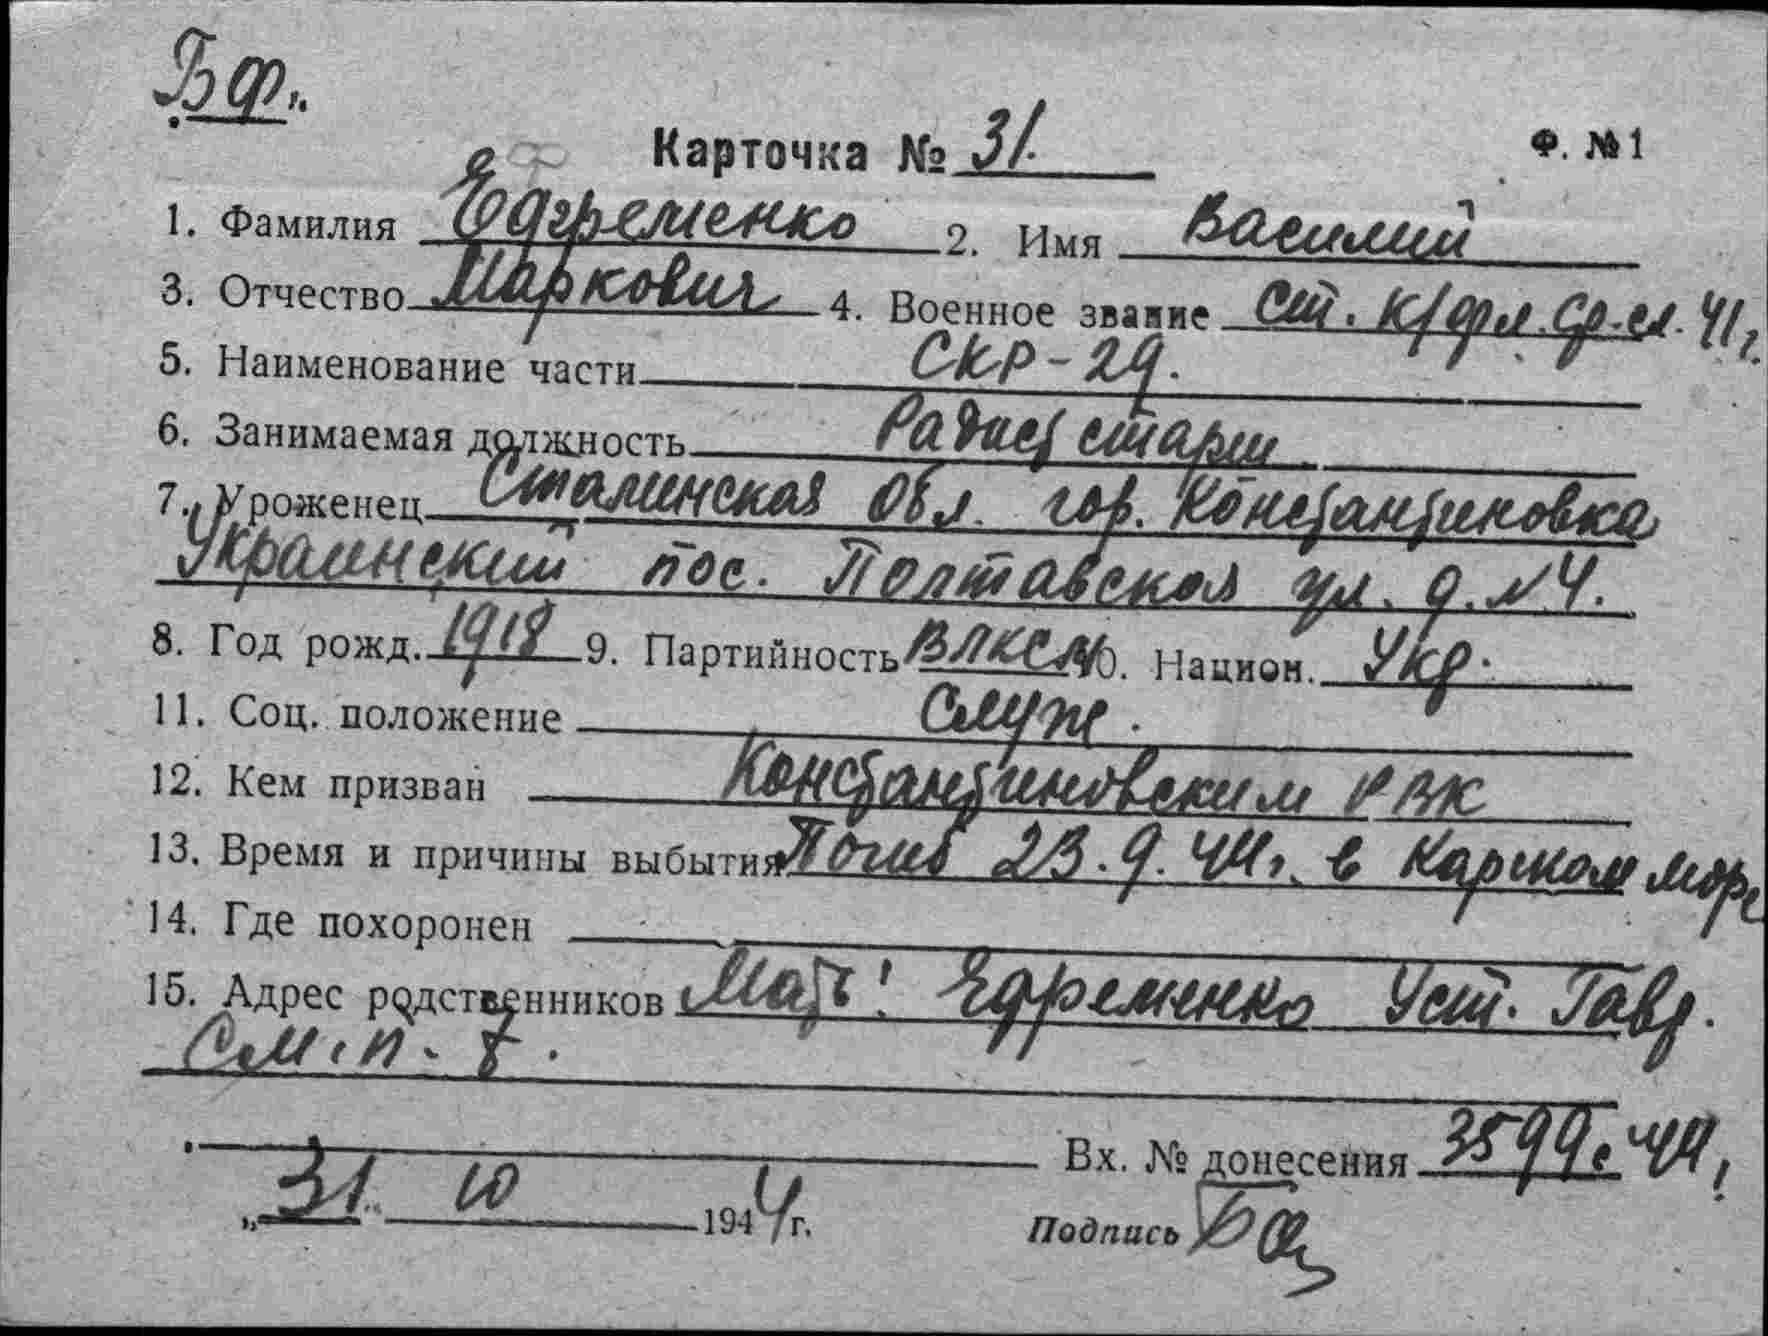 Бф.
Карточка № 31. Ф. № 1
1. Фамилия Ефременко 2. Имя Василий
3. Отчество Маркович 4. Военное звание ст. к/фл. ср.сл. 41г.
5. Наименование части СКР-29.
6. Занимаемая должность Радист старш
7. Уроженец Сталинская обл. гор. Константиновка
Украинский пос. Полтавская ул. д. №4.
8. Год рожд. 1918 9. Партийность ВЛКСМ 10. Национ. Укр.
11. Соц. положение Служ.
12. Кем призван Константиновским РВК
13. Время и причины выбытия Погиб 23.9.44г. в Карском море
14. Где похоронен
15. Адрес родственников Мать: Ефременко Уст. Гавр.
См. п. 7.
Вх. № донесения 3599с 44г
„31" 10 1944г. Подпись